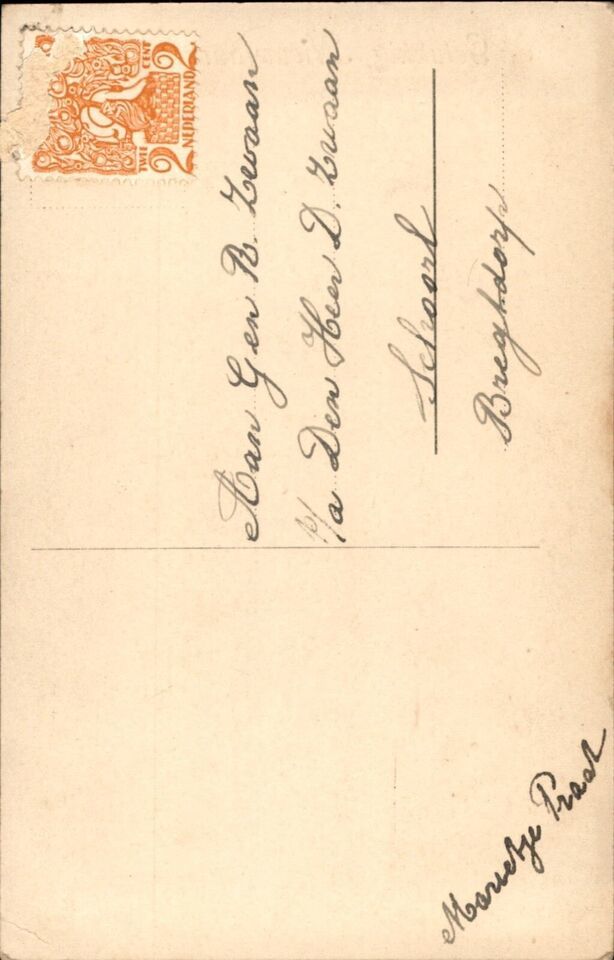 TWEE CENT
2 NEDERLAND 2
Aan Gen B. Zwaan
p/a Den Heer D. Zwaan
Schoorl
Breghdorp
Marietje Praat